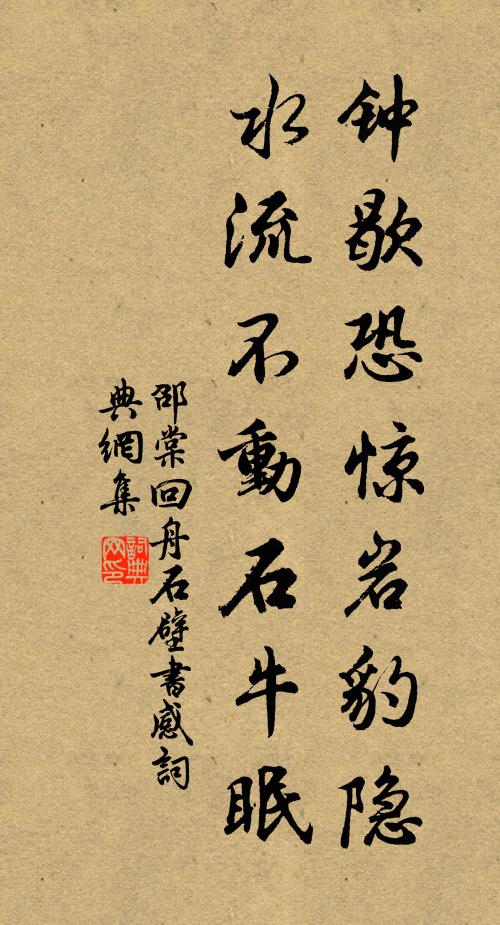 钟歇恐惊岩豹隐
水流不動石牛眠
邵棠回舟石壁書感詞
典網集
詞典网印